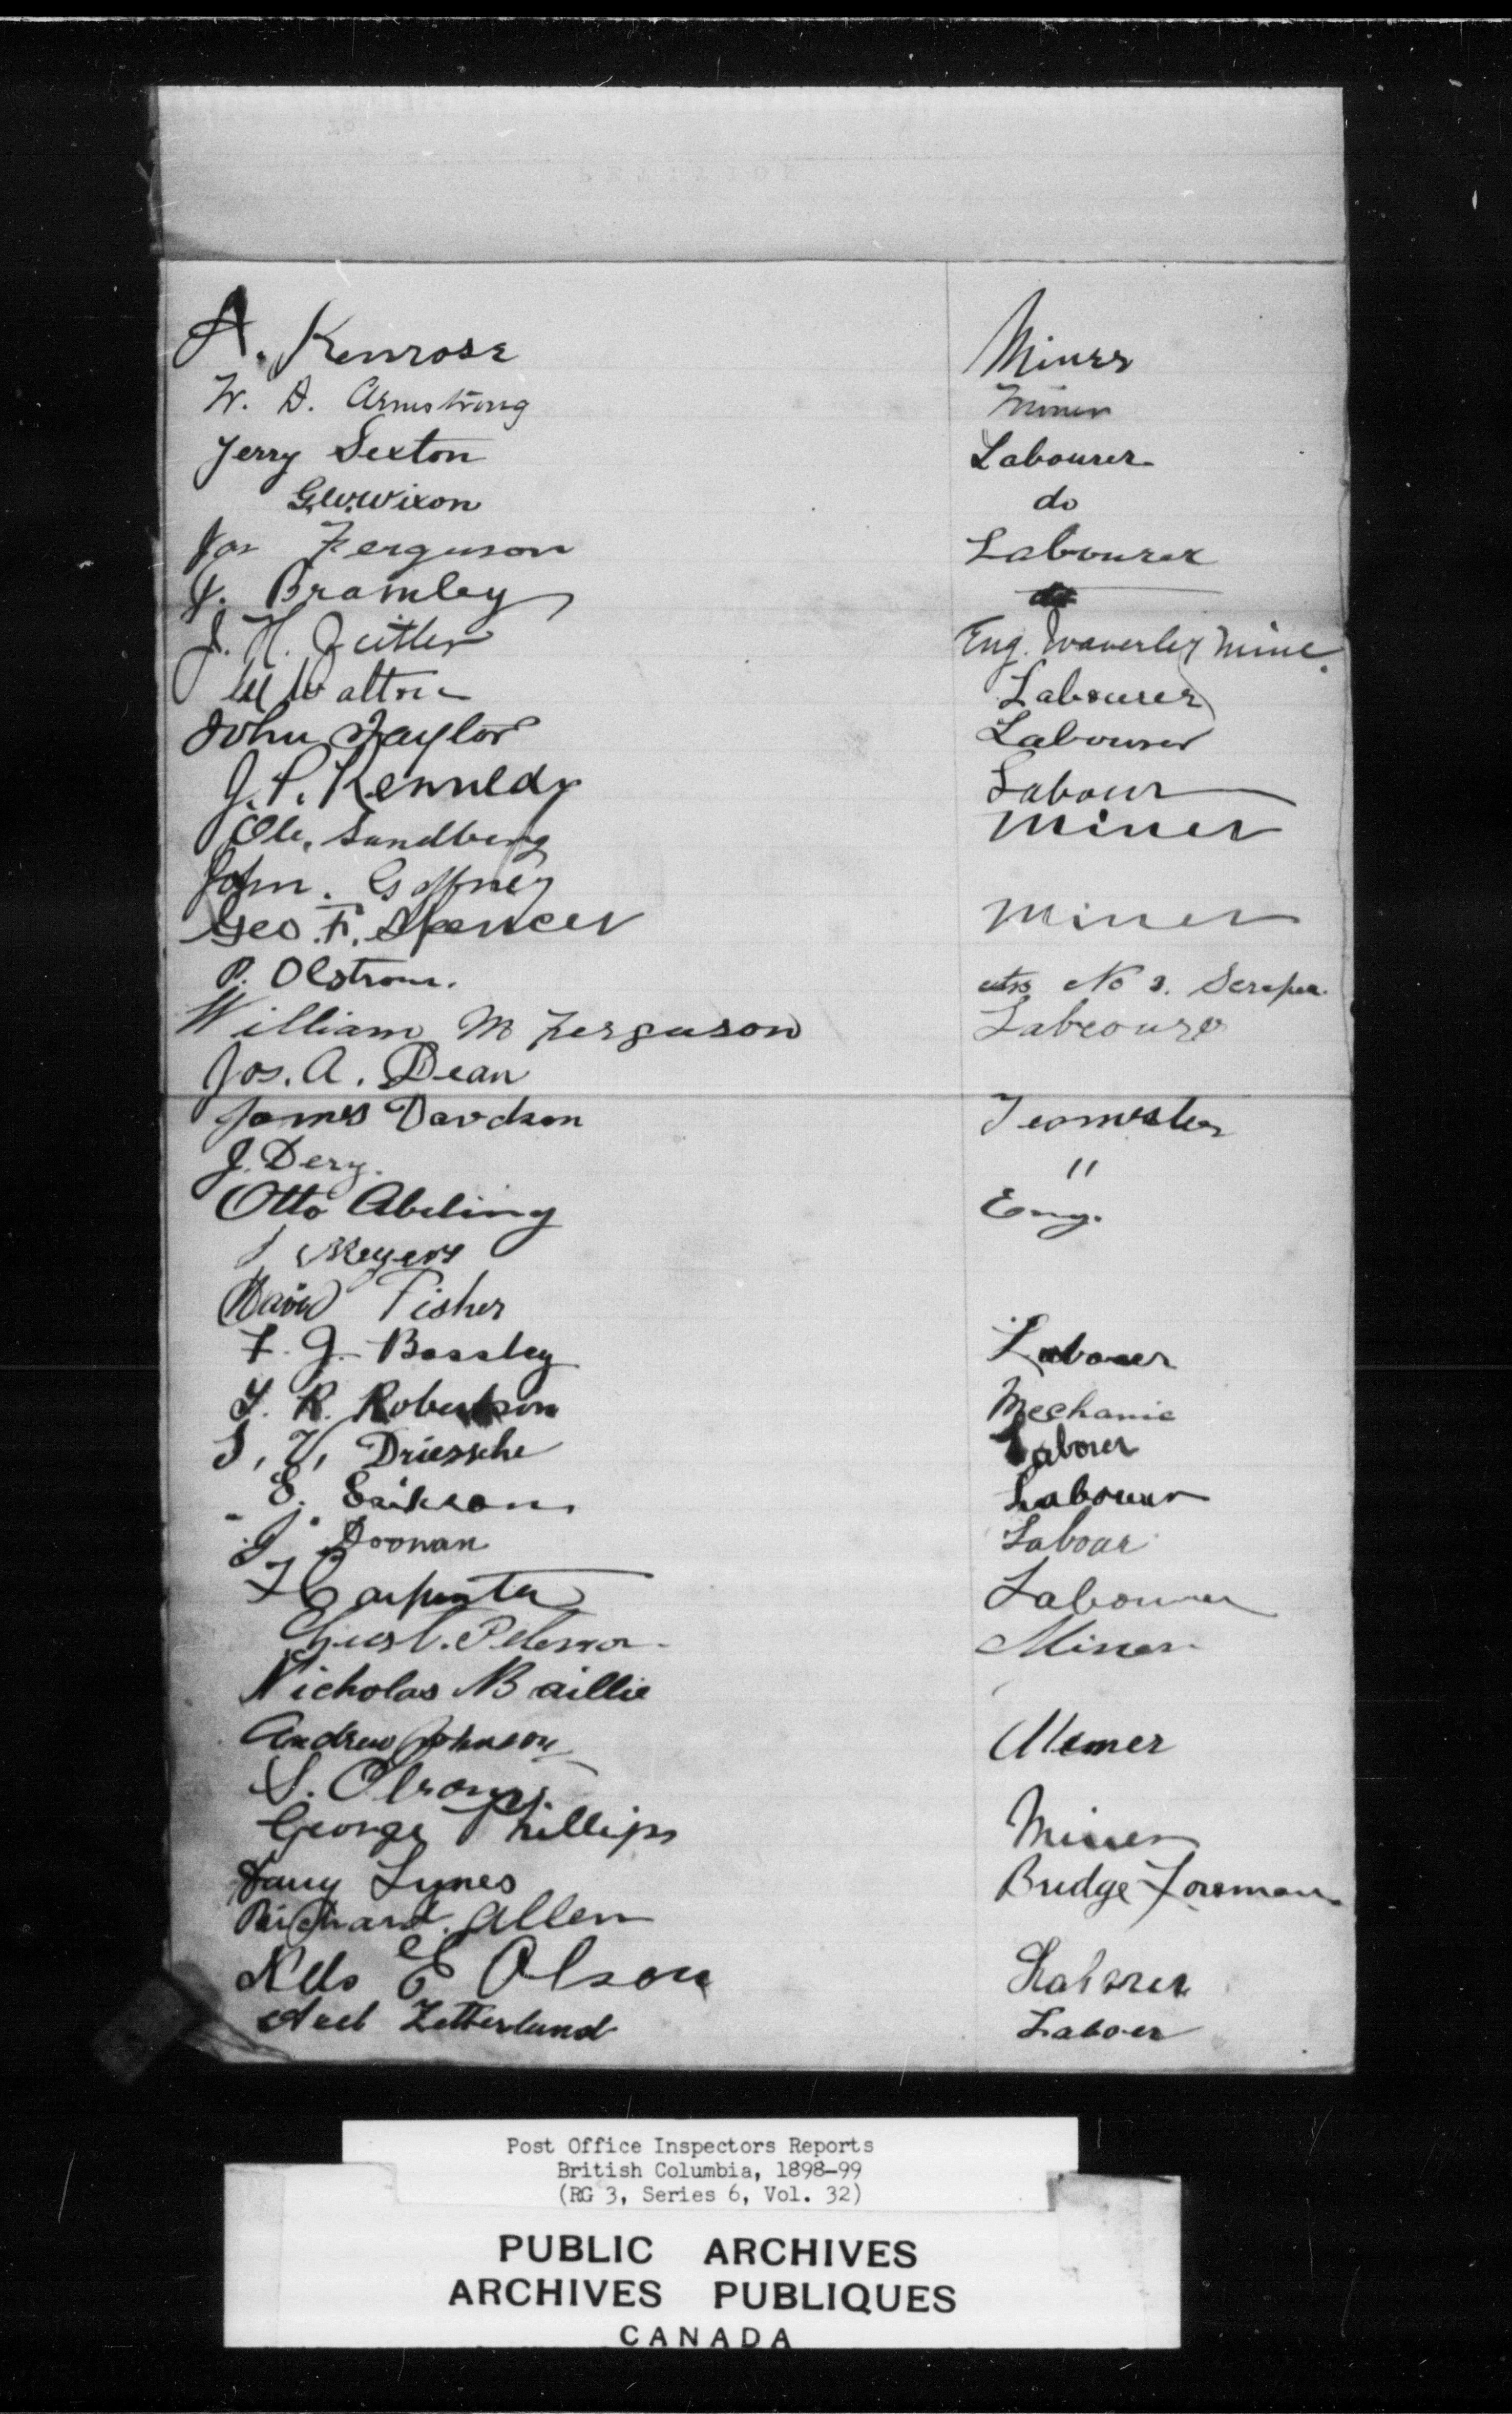 A. Kenrose Miner
W. D. Armstrong Miner
Jerry Sexton Labourer
G.W. Wixon do
Jas Ferguson Labourer
J. Bramley do
J. H. Eng. Waverley Mine.
W Walton Labourer
John Taylor Labourer
J. P. Kennedy Labour
Ole. Sandberg Miner
John. Gaffney
Geo. F. Spencer Miner
P. Olstrom. No 2. Scraper
William M Ferguson Labeourer
Jos. A. Dean
James Davdson Teamster
J. Dery. "
Otto Abeling Eng.
Meyers
David Fisher
F. J. Bossley Labouer
J. R. Robertson Mechanic
S. V. Driessche Laborer
E. Erikson Labourer
J. Doonan Labour
F Carpenter Labourer
Peterson Miner
Nicholas Baillie
Andrew Johnson Memer
S. Olson
George Phillips Miner
Harry Lynes Bridge Foreman
Richard Allen
Nels E Olson Laborer
Axel Zetterlund Laboer
Post Office Inspectors Reports
British Columbia, 1898-99
(RG 3, Series 6, Vol. 32)
PUBLIC ARCHIVES
ARCHIVES PUBLIQUES
CANADA